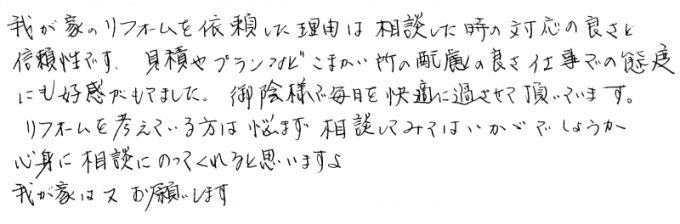 我が家のリフォームを依頼した理由は相談した時の対応の良さと
信頼性です。見積やプランなどこまかい所の配慮の良さ仕事での態度
にも好感がもてました。御陰様で毎日を快適に過させて頂いています。
リフォームを考えている方は悩まず相談してみてはいかがでしょうか
心身に相談にのってくれると思いますよ
我が家は又お願いします